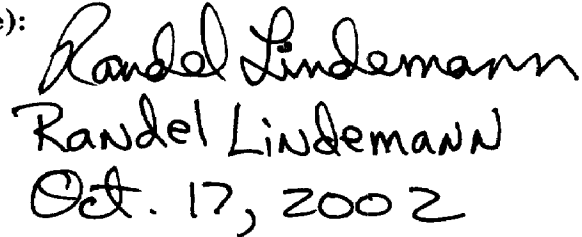 e):
Randel Lindemann
Randel Lindemann
Oct. 17, 2002